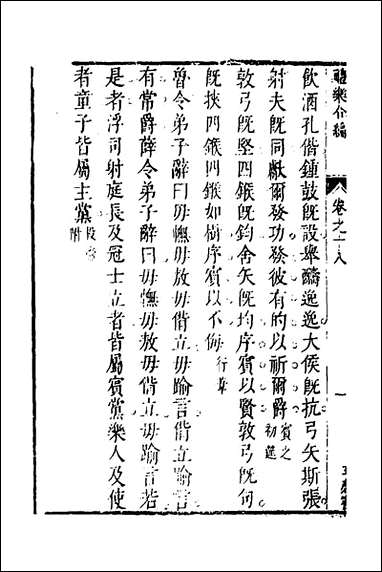 禮樂合編 卷之十八 一
飲酒孔偕鍾鼓既設舉醻逸逸大侯既抗弓矢斯張
射夫既同獻爾發功發彼有的以祈爾爵賓之初筵
敦弓既堅四鍭既鈞舍矢既均序賓以賢敦弓既句
既挾四鍭四鍭如樹序賓以不侮行葦
魯令弟子辭曰毋憮毋敖毋偝立毋踰言偝立踰言
有常爵薛令弟子辭曰毋憮毋敖毋偝立毋踰言若
是者浮司射庭長及冠士立者皆屬賓黨樂人及使
者童子皆屬主黨投壺附